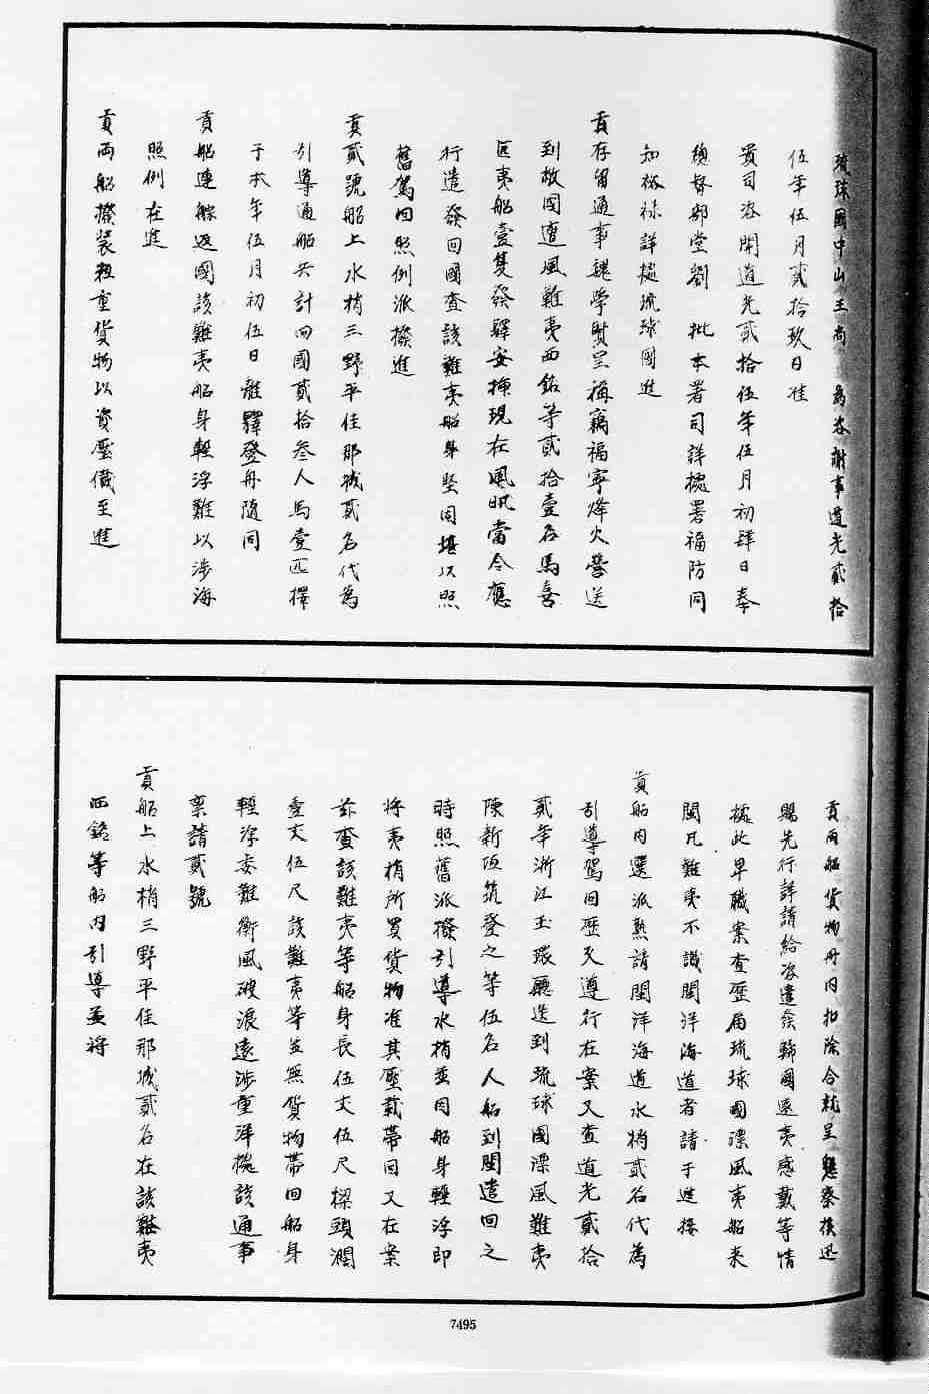 琉球國中山王尚　為咨謝事道光貳拾
伍年伍月貳拾玖日准
貴司咨開道光貳拾伍年伍月初肆日奉
總督部堂劉　批本署司詳據署福防同
知裕祿詳據琉球國進
貢存留通事魏學賢呈稱竊福寧烽火營送
到敝國遭風難夷西銘等貳拾壹名馬壹
匹夷船壹隻發驛安揷現在風汛當令應
行遣發回國查該難夷船身堅固堪以照
舊駕回照例派撥進
貢貳號船上水梢三野平佳那城貳名代為
引導通船共計回國貳拾叁人馬壹匹擇
于本年伍月初伍日離驛登舟隨同
貢船連䑸返國該難夷船身輕浮難以涉海
照例在進
貢兩船撥裝粗重貨物以資壓儎至進
貢兩船貨物冊內扣除合就呈懇察核迅
賜先行詳請給咨遣發歸國遠夷感戴等情
據此卑職案查歷屆琉球國漂風夷船來
閩凡難夷不識閩洋海道者請于進接
貢船內選派熟諳閩洋海道水梢貳名代為
引導駕回歷久遵行在案又查道光貳拾
貳年浙江玉環廳送到琉球國漂風難夷
陳新垣筑登之等伍名人船到閩遣回之
時照舊派撥引導水梢並因船身輕浮即
將夷梢所買貨物准其壓載帶回又在案
茲查該難夷等船身長伍丈伍尺樑頭濶
壹丈伍尺該難夷等並無貨物帶回船身
輕浮委難衝風破浪遠涉重洋據該通事
稟請貳號
貢船上水梢三野平佳那城貳名在該難夷
西銘等船內引導並將
7495